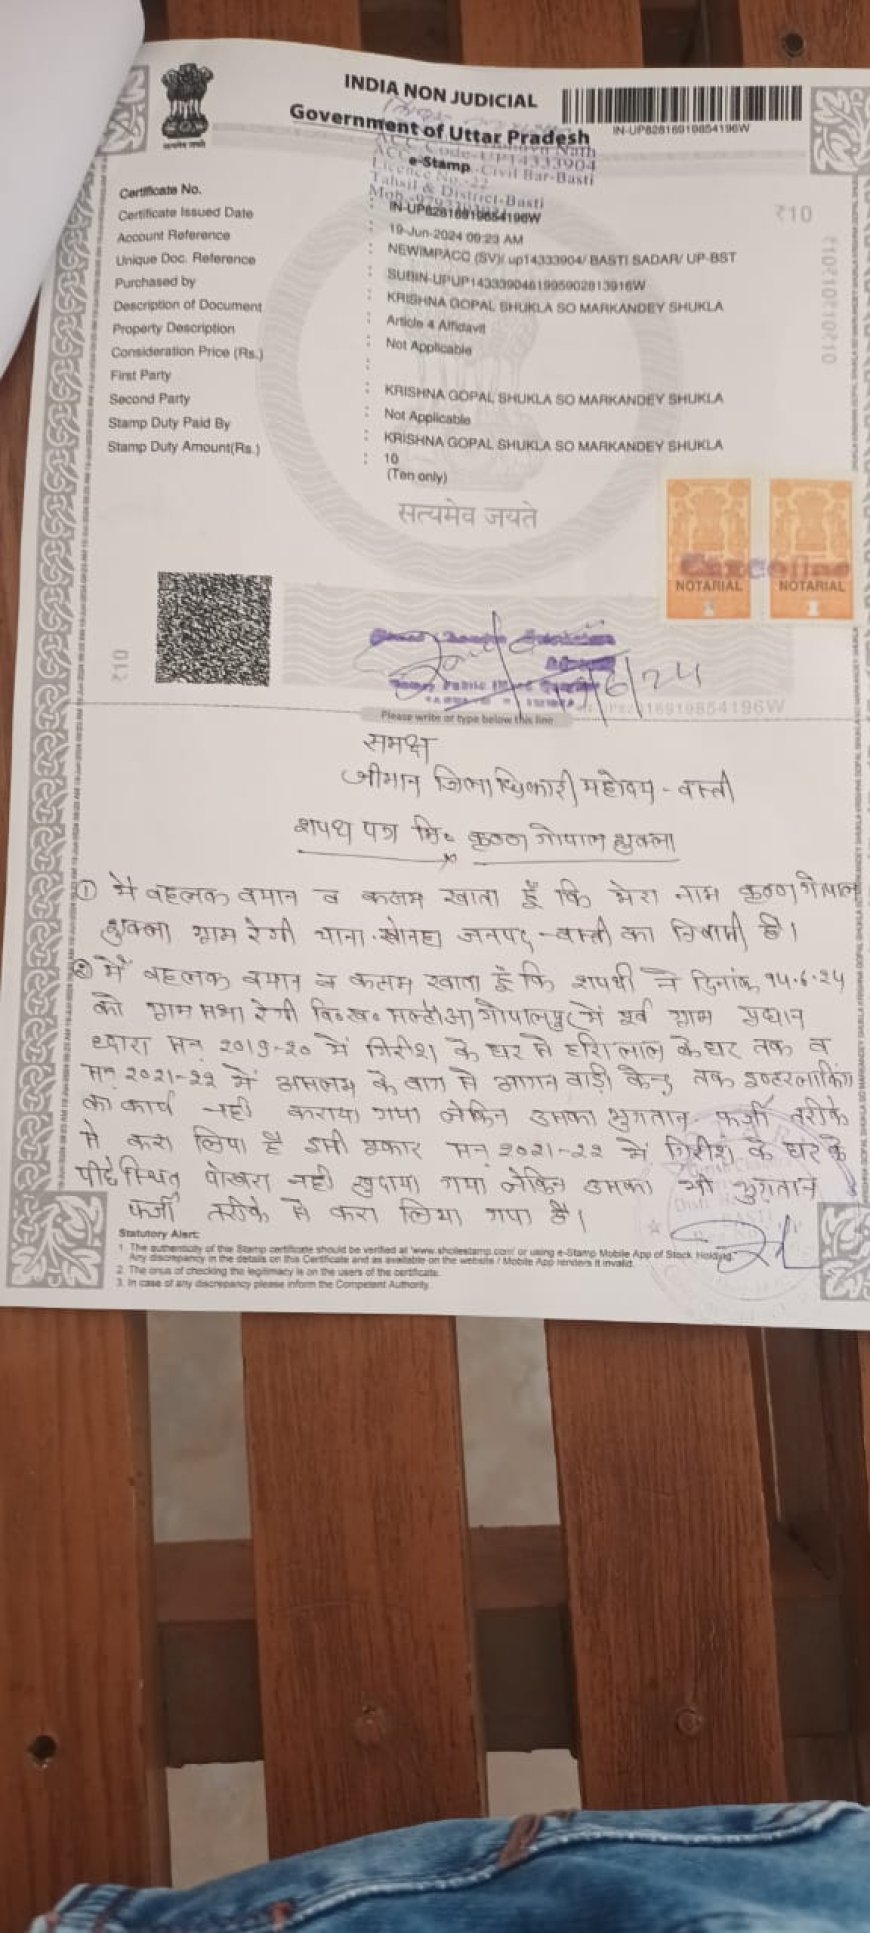 INDIA NON JUDICIAL
Government of Uttar Pradesh
e-Stamp
IN-UP82816919854196W
ACC Code-UP14333904
Licence No.-22 Civil Bar-Basti
Tahsil & District-Basti
₹10
Certificate No. : IN-UP82816919854196W
Certificate Issued Date : 19-Jun-2024 09:23 AM
Account Reference : NEWIMPACC (SV)/ up14333904/ BASTI SADAR/ UP-BST
Unique Doc. Reference : SUBIN-UPUP1433390461995902813916W
Purchased by : KRISHNA GOPAL SHUKLA SO MARKANDEY SHUKLA
Description of Document : Article 4 Affidavit
Property Description : Not Applicable
Consideration Price (Rs.) :
First Party : KRISHNA GOPAL SHUKLA SO MARKANDEY SHUKLA
Second Party : Not Applicable
Stamp Duty Paid By : KRISHNA GOPAL SHUKLA SO MARKANDEY SHUKLA
Stamp Duty Amount(Rs.) : 10
(Ten only)
सत्यमेव जयते
NOTARIAL NOTARIAL
Please write or type below this line
समक्ष
श्रीमान जिलाधिकारी महोदय - बस्ती
शपथ पत्र मि० कृष्ण गोपाल शुक्ला
① मैं बहलफ बयान व कसम खाता हूँ कि मेरा नाम कृष्ण गोपाल
शुक्ला ग्राम रेगी थाना सोनहा जनपद - बस्ती का निवासी है।
② मैं बहलफ बयान व कसम खाता हूँ कि शपथी ने दिनांक 14.6.24
को ग्राम सभा रेगी वि०ख० सल्टौआ गोपालपुर में पूर्व ग्राम प्रधान
द्वारा सन् 2019-20 में गिरीश के घर से हरिलाल के घर तक व
सन् 2021-22 में असलम के बाग से आगन बाड़ी केन्द्र तक इण्टरलाकिंग
का कार्य नही कराया गया लेकिन उसका भुगतान फर्जी तरीके
से करा लिया है इसी प्रकार सन् 2021-22 में गिरीश के घर के
पीछे स्थित पोखरा नही खुदाया गया लेकिन उसका भी भुगतान
फर्जी तरीके से करा लिया गया है।
Statutory Alert:
1. The authenticity of this Stamp certificate should be verified at 'www.shcilestamp.com' or using e-Stamp Mobile App of Stock Holding.
Any discrepancy in the details on this Certificate and as available on the website / Mobile App renders it invalid.
2. The onus of checking the legitimacy is on the users of the certificate.
3. In case of any discrepancy please inform the Competent Authority.